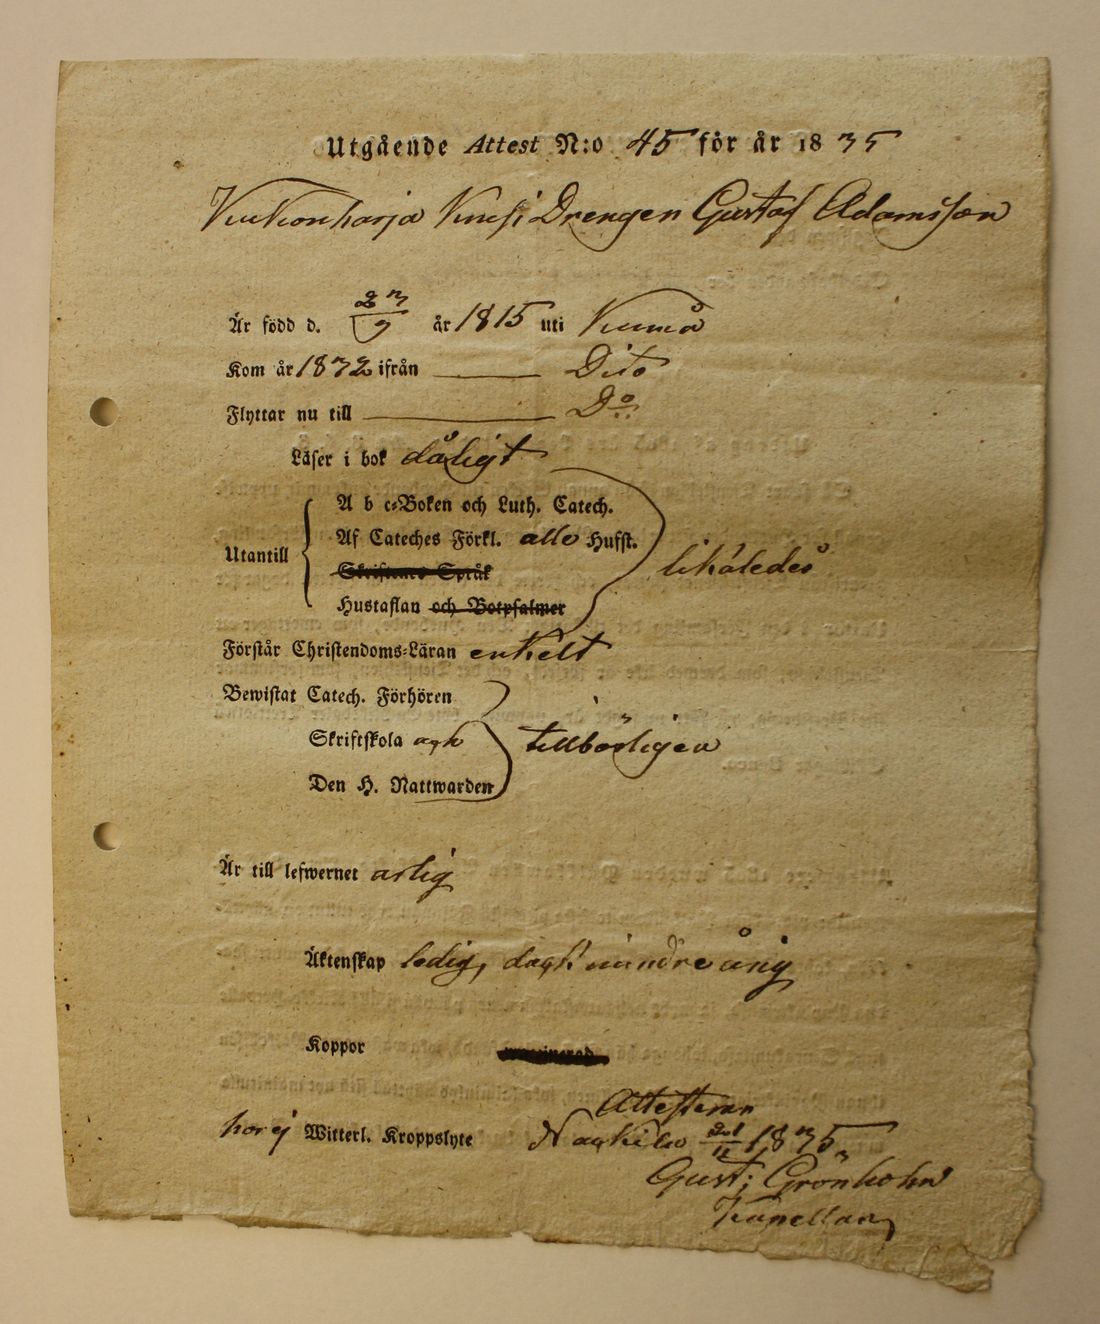 Utgående Attest N:o 45 för år 1835
Drengen Gustaf Adamsson
Är född d. 23/9 år 1815 uti Kiumå
Kom år 1832 ifrån Dito
Flyttar nu till Do
Läser i bok dåligt
Utantill
A b c-Boken och Luth. Catech.
Af Cateches Förkl. alla Hufst.
Skriftenes Språk
Hustaflan och Botpsalmer
likaledes
Förstår Christendoms-Läran enkelt
Bewistat Catech. Förhören
Skriftskola och
Den H. Nattwarden
tillbörligen
Är till lefwernet ärlig
Äktenskap ledig, dock mindre årig
Koppor
har ej Witterl. Kroppslyte
Attesteran
1835
Gust: Grönholm
Kapellan